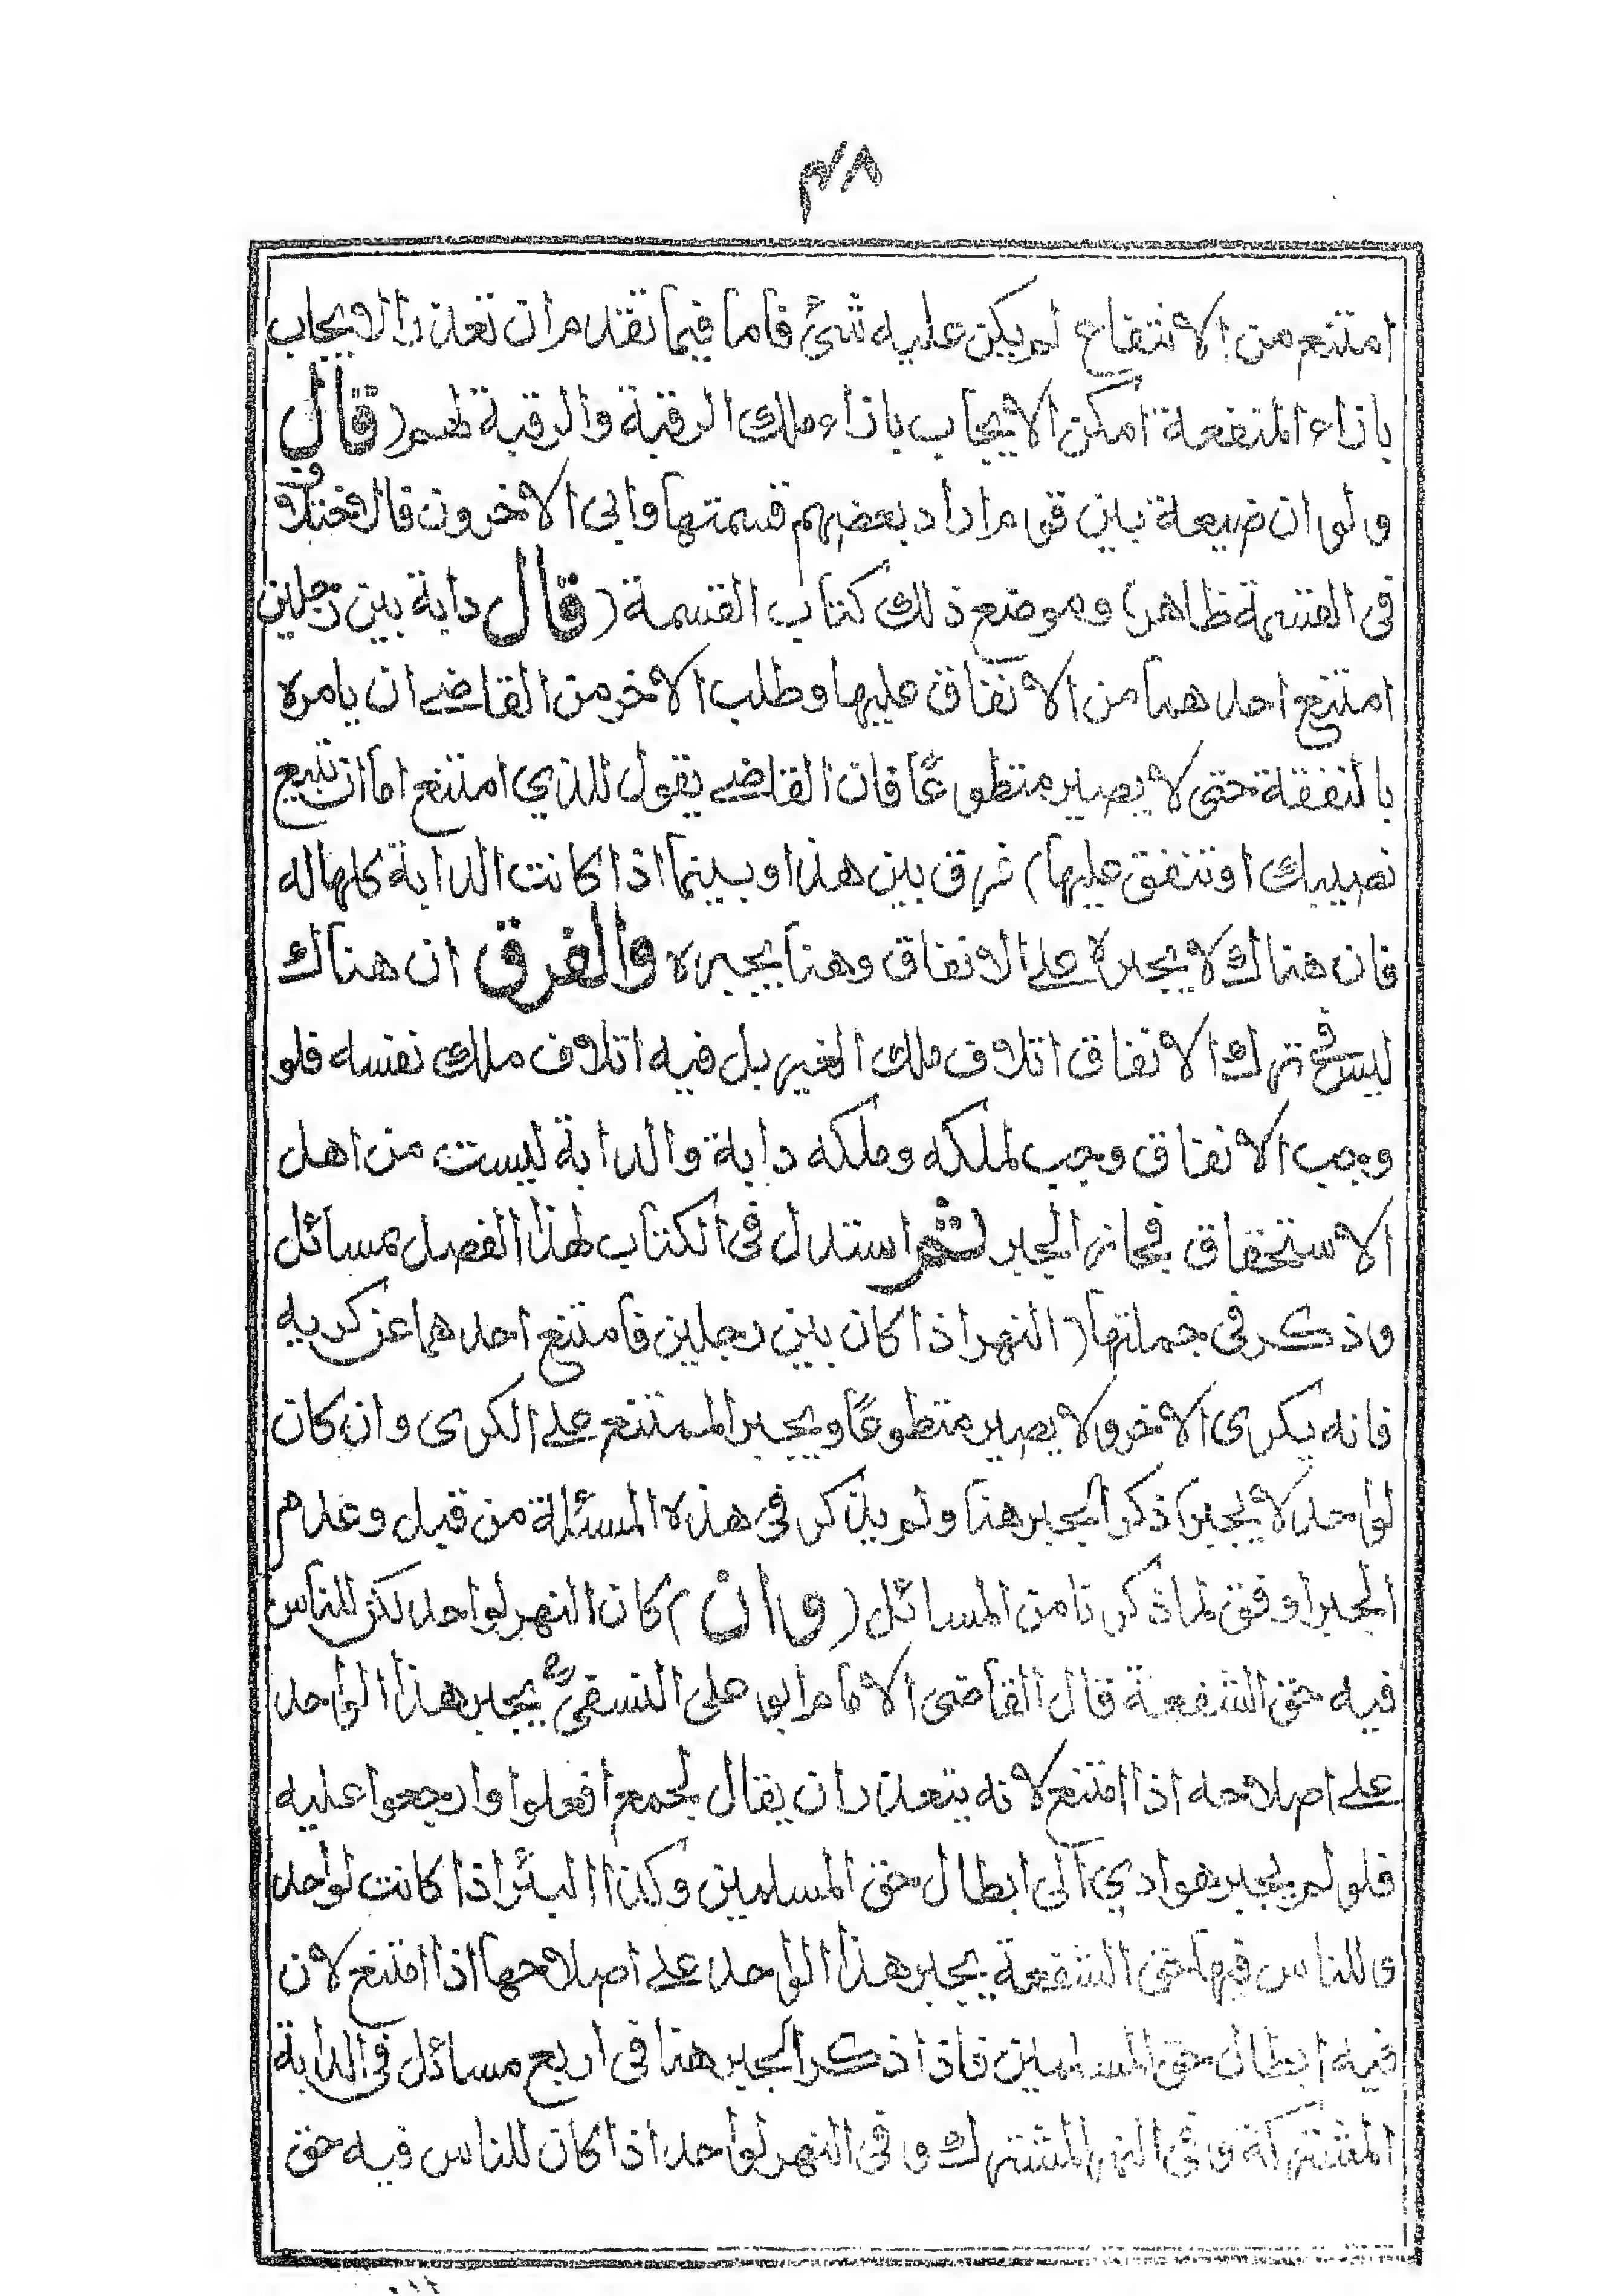 ٤٨
امتنع من الانتفاع لم يكن عليه شئ فاما فيما تقدم ان تعذر الايجاب
بازاء المنفعة امكن الايجاب بازاء ملك الرقبة والرقبة لهم (قال
ولو ان ضيعة بين قوم اراد بعضهم قسمتها وابى الاخرون قال
فى القسمة ظاهرا) وموضع ذلك كتاب القسمة (قال دابة بين رجلين
امتنع احدهما من الانفاق عليها وطلب الاخر من القاضے ان يامره
بالنفقة حتى لا يصير متطوعًا فان القاضے يقول للذي امتنع اما ان تبيع
نصيبك او تنفق عليها) فرق بين هذا وبينما اذا كانت الدابة كلها له
فان هناك لا يجبره علے الانفاق وهنا يجبره والفرق ان هناك
ليس فے ترك الانفاق اتلاف ملك الغير بل فيه اتلاف ملك نفسه فلو
وجب الانفاق وجب لملكه وملكه دابة والدابة ليست من اهل
الاستحقاق فجاز الجبر ثم استدل فى الكتاب لهذا الفصل بمسائل
وذكر فى جملتها (النهر اذا كان بين رجلين فامتنع احدهما عن كريه
فانه يكرى الاخر ولا يصير متطوعًا ويجبر الممتنع علے الكرى وان كان
لواحد لا يجبر) ذكر الجبر هنا ولم يذكر فى هذه المسئلة من قبل وعدم
الجبر اوفق لما ذكرنا من المسائل (وان) كان النهر لواحد لكن للناس
فيه حق الشفعة قال القاضى الامام ابو على النسفىؒ يجبر هذا الواحد
علے اصلاحه اذا امتنع لانه يتعذر ان يقال لجمع افعلوا وارجعوا عليه
فلو لم يجبر هو ادي الى ابطال حق المسلمين وكذا البئر اذا كانت لواحد
وللناس فيها حق الشفعة يجبر هذا الواحد علے اصلاحها اذا امتنع لان
فيه ابطال حق المسلمين فاذا ذكر الجبر هنا فى اربع مسائل فى الدابة
المشتركة وفى النهر المشترك وفى النهر لواحد اذا كان للناس فيه حق